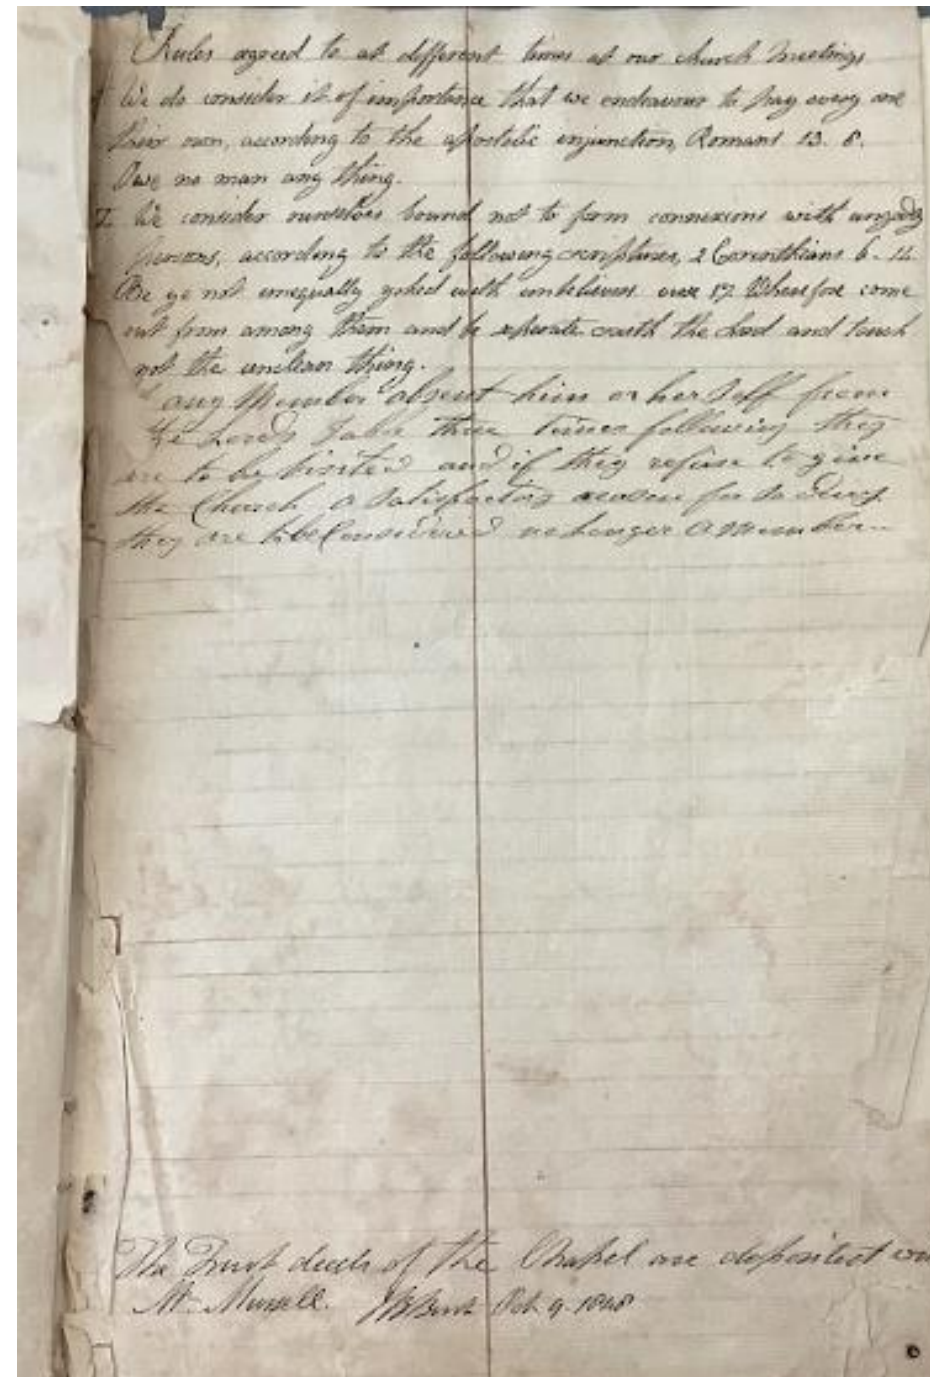 Rules agreed to at different times at our church meetings
1 We do consider it of importance that we endeavour to pay every one
their own, according to the apostolic injunction, Romans 13. 8.
Owe no man any thing.
2 We consider ourselves bound not to form connexions with ungodly
persons, according to the following scriptures, 2 Corinthians 6. 14.
Be ye not unequally yoked with unbelievers verse 17. Wherefore come
out from among them and be seperate saith the Lord and touch
not the unclean thing.
any Member absent him or herself from
the Lords Table three times following they
are to be visited and if they refuse to give
the Church a satisfactory reason for so doing
they are to be Considered no longer a Member
The Trust deeds of the Chapel are deposited
Mr Mursell. 9. 1848